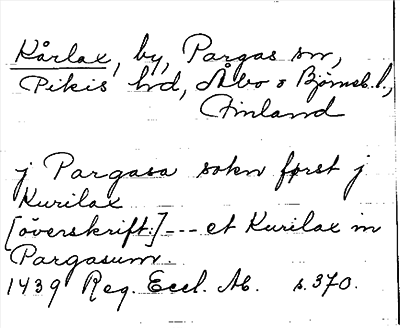 Kårlax, by, Pargas sn,
Pikis hd, Åbo o Bjørneb. l.,
Finland
j Pargasa sokn først j
Kurilax
[överskrift:] --- et Kurilax in
Pargasum.
1439 Reg. Eccl. Ab. s. 370.